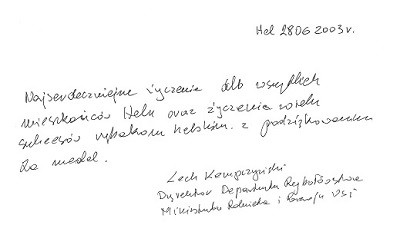 Hel 28 06 2003 r.
Najserdeczniejsze życzenia dla wszystkich
mieszkańców Helu oraz życzenia wielu
sukcesów rybakom helskim. z podziękowaniem
za medal.
Lech Kempczyński
Dyrektor Departamentu Rybołówstwa
Ministerstwa Rolnictwa i Rozwoju Wsi